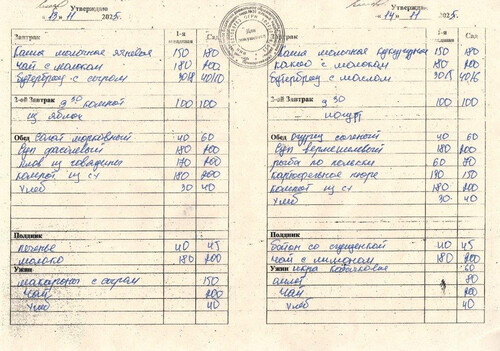 Утверждаю
13 11 2025г.
Завтрак
1-я младшая
Сад
Каша молочная ячневая 150 180
чай с молоком 180 200
бутерброд с сыром 30/8 40/10
2-ой Завтрак
9 30 компот 100 100
из яблок
Обед Салат морковный 40 60
Суп фасолевый 180 200
плов из говядины 170 200
компот из с/ф 180 200
хлеб 30 40
Полдник
печенье 40 45
молоко 180 200
Ужин
макароны с сыром 150
чай 200
хлеб 40
Утверждаю
14 11 2025г.
Завтрак
1-я младшая
Сад
Каша молочная кукурузная 150 180
какао с молоком 180 200
бутерброд с маслом 30/5 40/6
2-ой Завтрак
9 30 100 100
йогурт
Обед Огурец соленый 40 60
Суп вермишелевый 180 200
рыба по польски 60 70
картофельное пюре 130 150
компот из с/ф 180 200
хлеб 30 40
Полдник
батон со сгущенкой 40 45
чай с лимоном 180 200
Ужин икра кабачковая 60
омлет 80
чай 200
хлеб 40